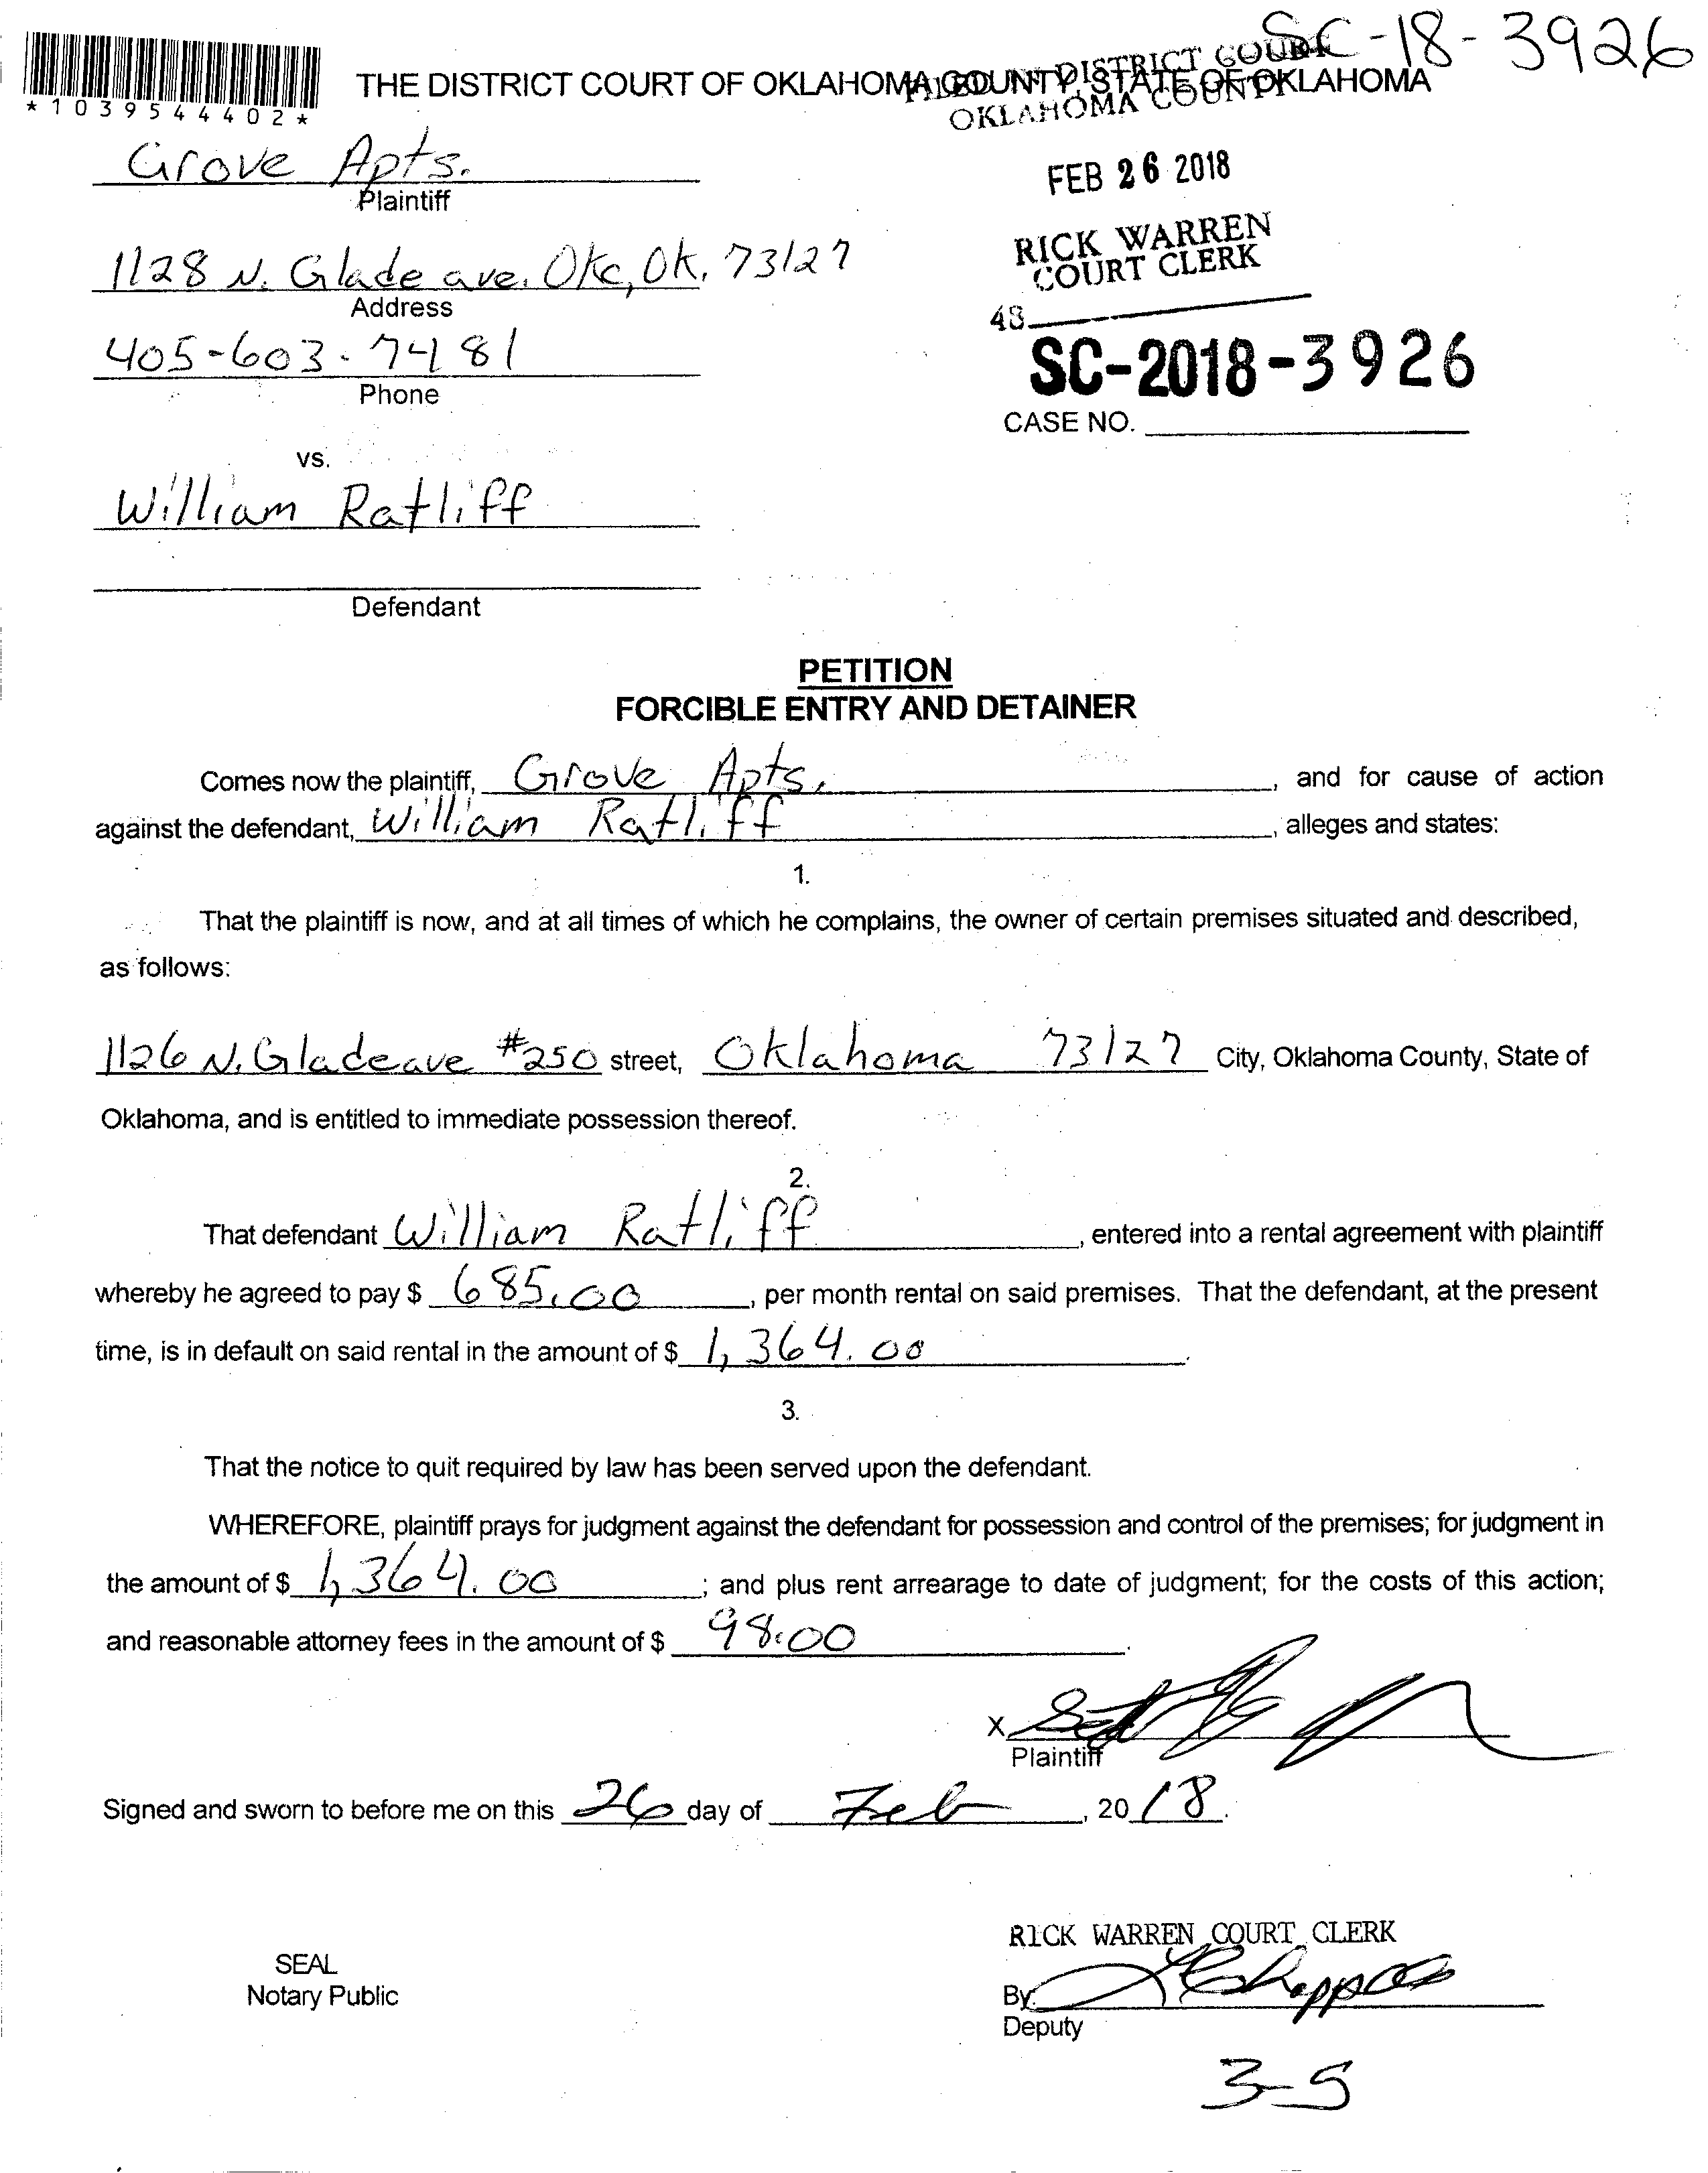 SC-18-3926
*1039544402*
THE DISTRICT COURT OF OKLAHOMA COUNTY, STATE OF OKLAHOMA
FILED IN DISTRICT COURT
OKLAHOMA COUNTY
Grove Apts.
Plaintiff
FEB 26 2018
1128 N. Glade ave. Okc, Ok, 73127
Address
RICK WARREN
COURT CLERK
405-603-7481
Phone
43
SC-2018-3926
CASE NO.
vs.
William Ratliff
Defendant
PETITION
FORCIBLE ENTRY AND DETAINER
Comes now the plaintiff, Grove Apts. , and for cause of action
against the defendant, William Ratliff , alleges and states:
1.
That the plaintiff is now, and at all times of which he complains, the owner of certain premises situated and described,
as follows:
1126 N. Glade ave #250 street, Oklahoma 73127 City, Oklahoma County, State of
Oklahoma, and is entitled to immediate possession thereof.
2.
That defendant William Ratliff , entered into a rental agreement with plaintiff
whereby he agreed to pay $ 685.00 , per month rental on said premises. That the defendant, at the present
time, is in default on said rental in the amount of $ 1,364.00 .
3.
That the notice to quit required by law has been served upon the defendant.
WHEREFORE, plaintiff prays for judgment against the defendant for possession and control of the premises; for judgment in
the amount of $ 1,364.00 ; and plus rent arrearage to date of judgment; for the costs of this action;
and reasonable attorney fees in the amount of $ 98.00 .
X
Plaintiff
Signed and sworn to before me on this 26 day of Feb , 20 18.
RICK WARREN COURT CLERK
SEAL
Notary Public
By:
Deputy
3-5